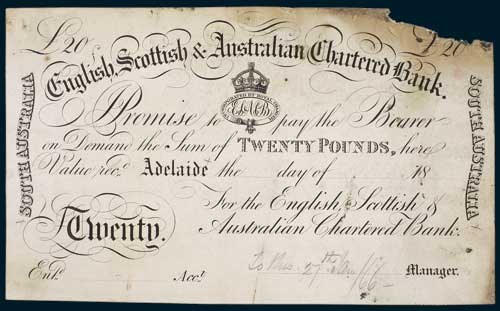 £20 £20
English, Scottish & Australian Chartered Bank.
SOUTH AUSTRALIA
SOUTH AUSTRALIA
INCORPORATED BY ROYAL
I Promise to pay the Bearer
on Demand the Sum of TWENTY POUNDS, here
Value recd. Adelaide the day of 18
For the English, Scottish &
Twenty. Australian Chartered Bank.
Entd. Acct. 27th Manager.